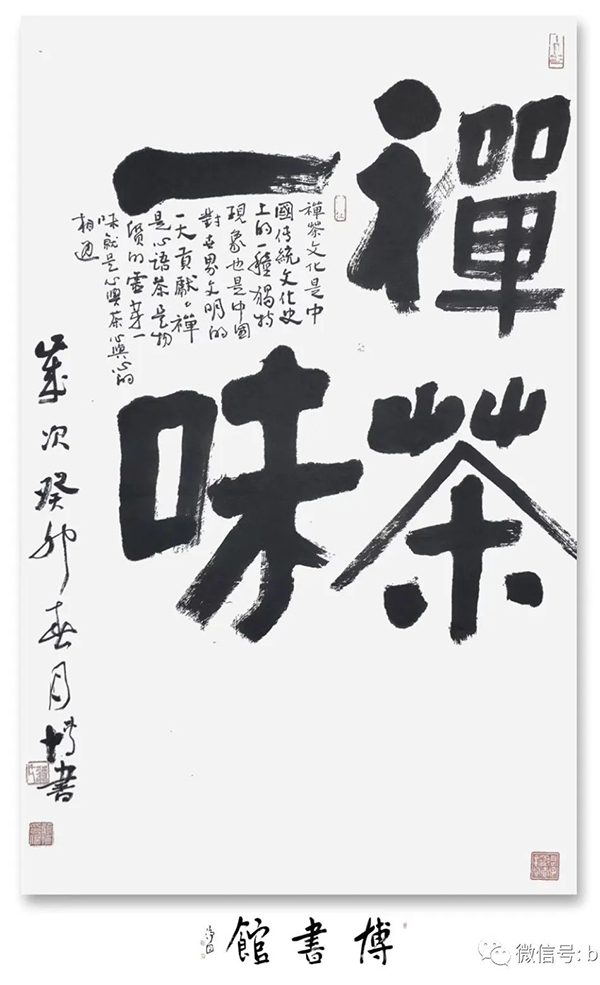 禪茶
一味
禪茶文化是中
國傳統文化史
上的一種獨特
現象也是中國
對世界文明的
一大貢獻。禪
是心語茶是物
質的靈芽一
味就是心與茶心與心的
相通
歲次癸卯春月博書
博書館
微信号: b